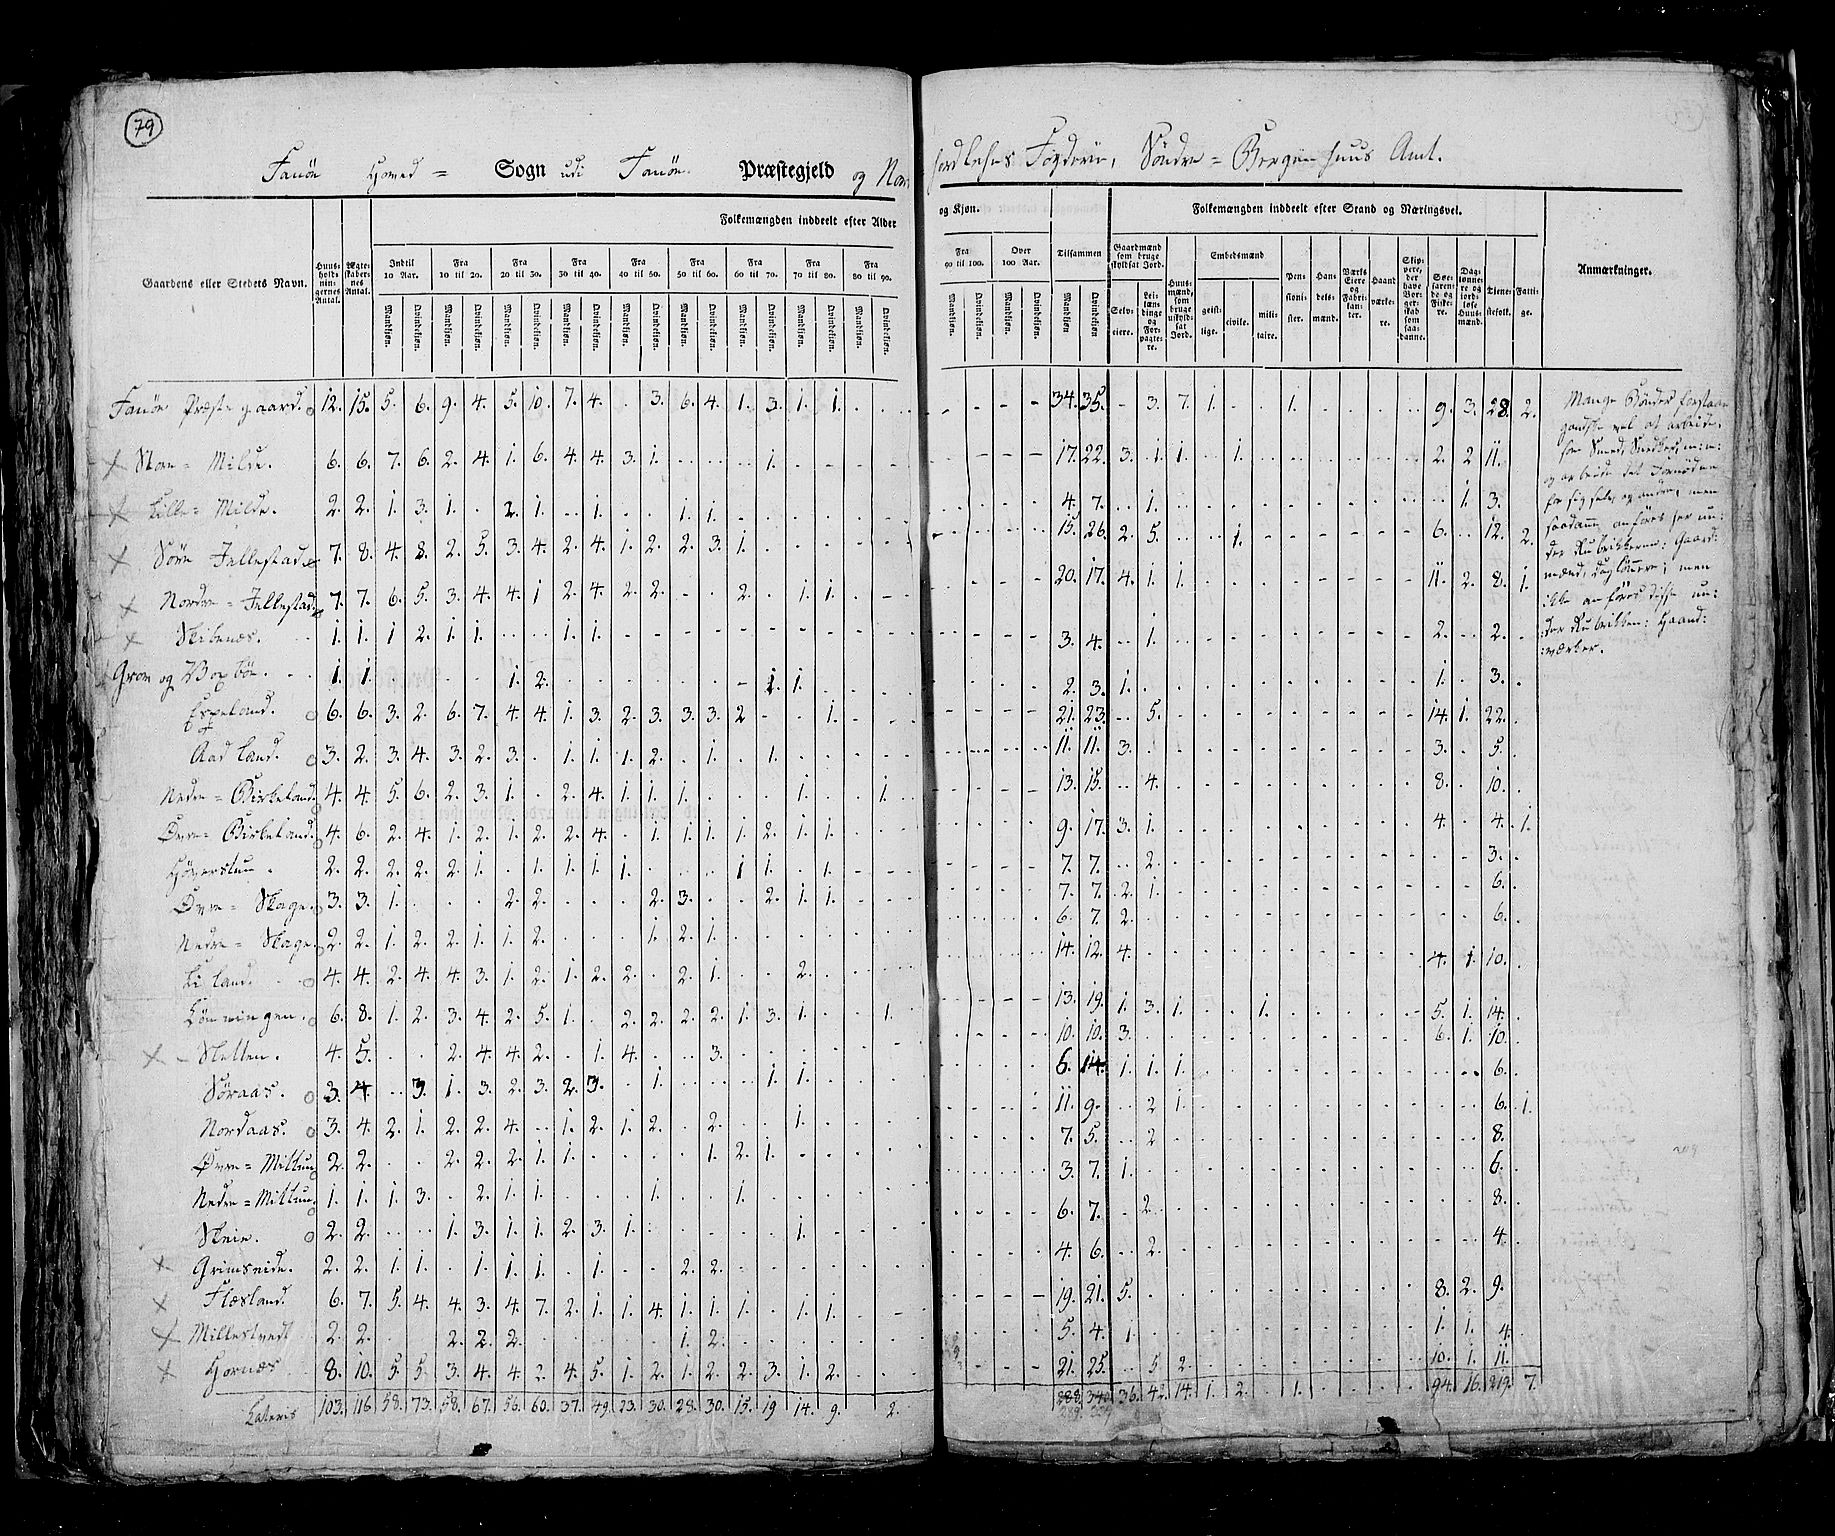 79
Fanöe Hoved = Sogn udi Fanöe Præstegjeld og Nordhordlehns Fogderie, Söndre = Bergenhuus Amt.
Gaardens eller Stedets Navn.
Huusholdningernes Antal.
Ægteskabernes Antal.
Folkemængden inddeelt efter Alder og Kjøn.
Indtil 10 Aar. Fra 10 til 20. Fra 20 til 30. Fra 30 til 40. Fra 40 til 50. Fra 50 til 60. Fra 60 til 70. Fra 70 til 80. Fra 80 til 90. Fra 90 til 100. Over 100 Aar. Tilsammen
Mandkiøn. Qvindekiøn.
Folkemængden inddeelt efter Stand og Næringsvei.
Gaardmænd som bruge skyldsat Jord.
Selveiere. Leilændinge og Forpagtere.
Huusmænd, som bruge uskyldsat Jord.
Embedsmænd
geistlige. civile. militaire.
Pensionister.
Handelsmænd.
Værks Eiere og Fabrikanter.
Haandværkere.
Skippere, der have Borgerskab som saadanne.
Søefarende og Fiskere.
Daglønnere og jordløse Huusmænd.
Tienestefolk.
Fattige.
Anmærkninger.
Fanöe Præstegaard. 12. 15. 5. 6. 9. 4. 5. 10. 7. 4. . 3. 6. 4. 1. 3. 1. 1. 34. 35. - 3. 7. 1. 1. 9. 3. 28. 2.
Store = Milde. 6. 6. 7. 6. 2. 4. 1. 6. 4. 4. 3. 1. 1. 17. 22. 3. 1. 1. 1. 2. 2 11.
Lille = Milde. 2. 2. 1. 3. 1. . 2. 1. . 1. 1. 1. 4. 7. 1. 1. 3.
Söre Fellestad 7. 8. 4. 8. 2. 5. 3. 4. 2. 4. 1. 2. 2. 3. 1. 15. 26. 2. 5. 1. 6. 12. 2.
Nordre = Fellestad. 7. 7. 6. 5. 3. 4. 4. 1 2. 4. 2. 2. 2. 1. 1. 20. 17. 4. 1. 1. 11. 2. 8. 1.
Skibenæs. 1. 1. 1 2. 1. 1. 1. 1. 3. 4. 1. 2. 2.
Grov og 1. 1. 1. 2. 1. 1. 2. 3. 1. 1. 3.
Espeland. 6. 6. 3. 2. 6. 7. 4. 4. 1. 3. 2. 3. 3. 3. 2 1. 21. 23. 5. 14. 1. 22.
Aadland. 3. 2. 3. 4. 3. 2. 3. 1. 1. 1. 2. 1. 1. 11. 11. 3. 3. 5.
Nedre = Birkeland. 4. 4. 5. 6. 2. 3. 1. 2. 4. 1. 1. 1. 1. 1. 13. 15. 4. 8. 10.
Övre = Birkeland. 4. 6. 2. 4. 1. 2. 1. 2. 2. 4. 1. 1. 1. 1. 2. 1. 1. 9. 17. 3. 1. 4. 4. 1.
2. 2. 2. 2. 2. 1. 1. 1. 1. 1. 1 1. 1. 7. 7. 2. 3.
Övre = Skage. 3. 3. 1. 2. 2. 2. 3. 2. 1. 1. 7. 7. 2. 1. 6.
Nedre = Skage. 2. 2. 1. 2. 2. 1. 1. 2. 1. 2. 1. 6. 7. 2. 6.
Liland. 4. 4. 2. 4. 4. 3. 1. 2. 1. 2. 2. 2. 1. 2. 14. 12. 4. 4. 1. 10.
Lönningen. 6. 8. 1. 2. 3. 4. 2. 5. 1. 2. 2. 2. 2. 1. 3. 1. 1. 13. 19. 1. 3. 1. 1. 5. 1. 14.
Sletten. 4. 5. 2. 4. 4. 2. 1. 4. 3. 10. 10. 3. 6. 1. 10.
Söraas. 3. 4. 3. 1. 3. 2. 3. 2. 3. 1. 1. 1. 6. 14. 1. 1. 1. 6.
Nordaas. 3. 4. 2. 1. 2. 2. 4. 1. 2. 1. 2. 2. 1. 11. 9. 2 1. 6. 1.
Övre = Mittun 2. 2. 2. 2. 2. 1. 1. 1. 2. 1. 7. 5. 2 8.
Nedre = Mittun. 1. 1. 1. 3. 2. 1. 1. 1. 1. 3. 7. 1. 6.
Skeie. 2. 2. 1. 3. 1. 1. 2. 3. 1. 1. 6. 7. 2. 8.
Grimseide. 2. 2. 1. 1. 1. 1. 1. 1. 2. 2. 4. 6. 2. 4.
Flæsland. 6. 7. 5. 4. 4. 3. 4. 7. 2. 1. 1. 4. 1. 1. 1. 1. 1. 19. 21. 5. 8. 2. 9.
Millestvedt 2. 2. 2. 2. 2. 1. 2. 5. 4. 1. 1. 1. 4.
Hornæs 8. 10. 5. 5. 3. 4. 4. 2. 4. 5. 1. 2. 1. 2. 2. 3. 1. 2. 21. 25. 5. 2. 10. 1. 11.
Lateris 103. 116 58. 73. 58. 67. 56. 60. 37. 49. 23. 30. 28. 30. 15. 19 14. 9. 2. 288. 340. 36. 42. 14. 1. 2. 1. 94. 16. 219. 7.
289. 339
Mange Bönder forstaae
gandske vel at arbeide,
som Smed, Snedker, m: m:
og arbeide det Fornödne
for sig selv og andre, men
saadanne anföres her un:
der Rubrikkerne: Gaard:
mænd, Daglönnere; men
ikke anföres disse un:
:der Rubrikken: Haand:
:værker.